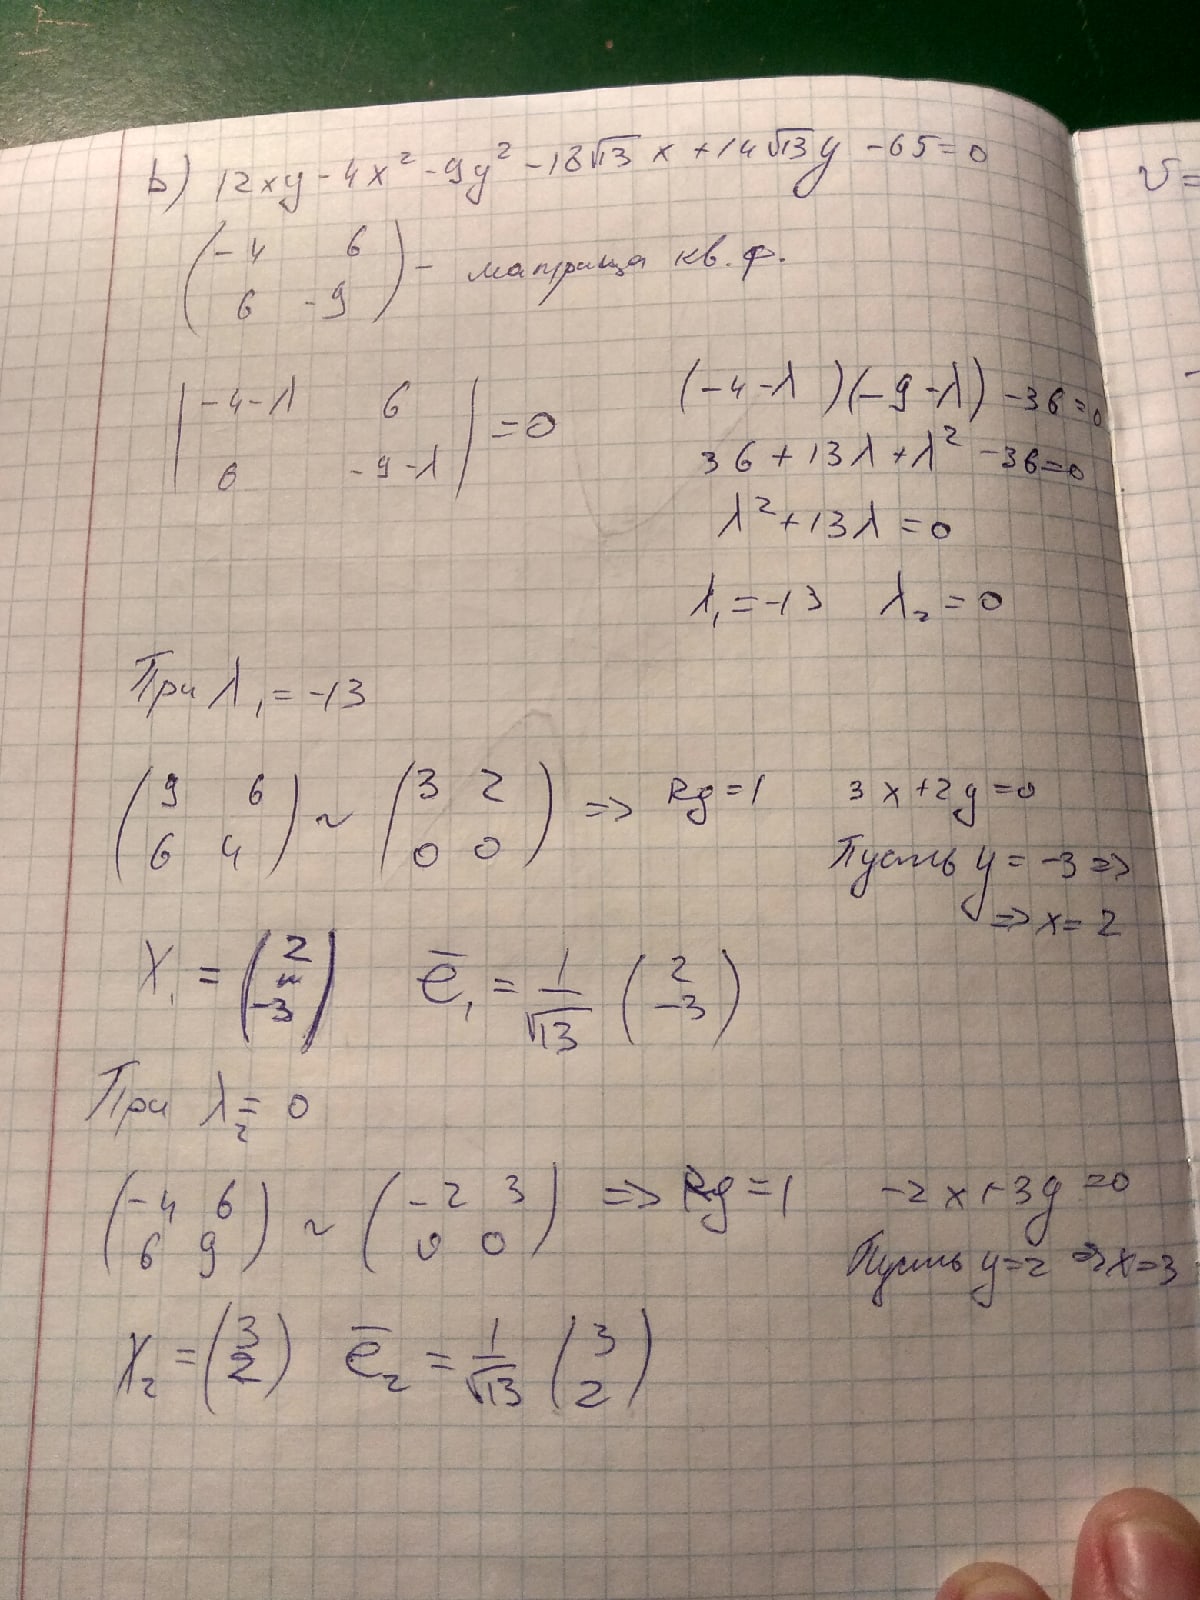 b) 12xy - 4x² - 9y² - 18√13 x + 14√13 y - 65 = 0
(-4 6
6 -9) - матрица кв. ф.
|-4-λ 6
6 -9-λ| = 0
(-4-λ)(-9-λ) - 36 = 0
36 + 13λ + λ² - 36 = 0
λ² + 13λ = 0
λ₁ = -13 λ₂ = 0
При λ₁ = -13
(9 6
6 4) ~ (3 2
0 0) => Rg = 1
3x + 2y = 0
Пусть y = -3 =>
=> x = 2
X₁ = (2
-3) e̅₁ = 1/√13 (2
-3)
При λ₂ = 0
(-4 6
6 9) ~ (-2 3
0 0) => Rg = 1
-2x + 3y = 0
Пусть y = 2 => x = 3
X₂ = (3
2) e̅₂ = 1/√13 (3
2)
v =